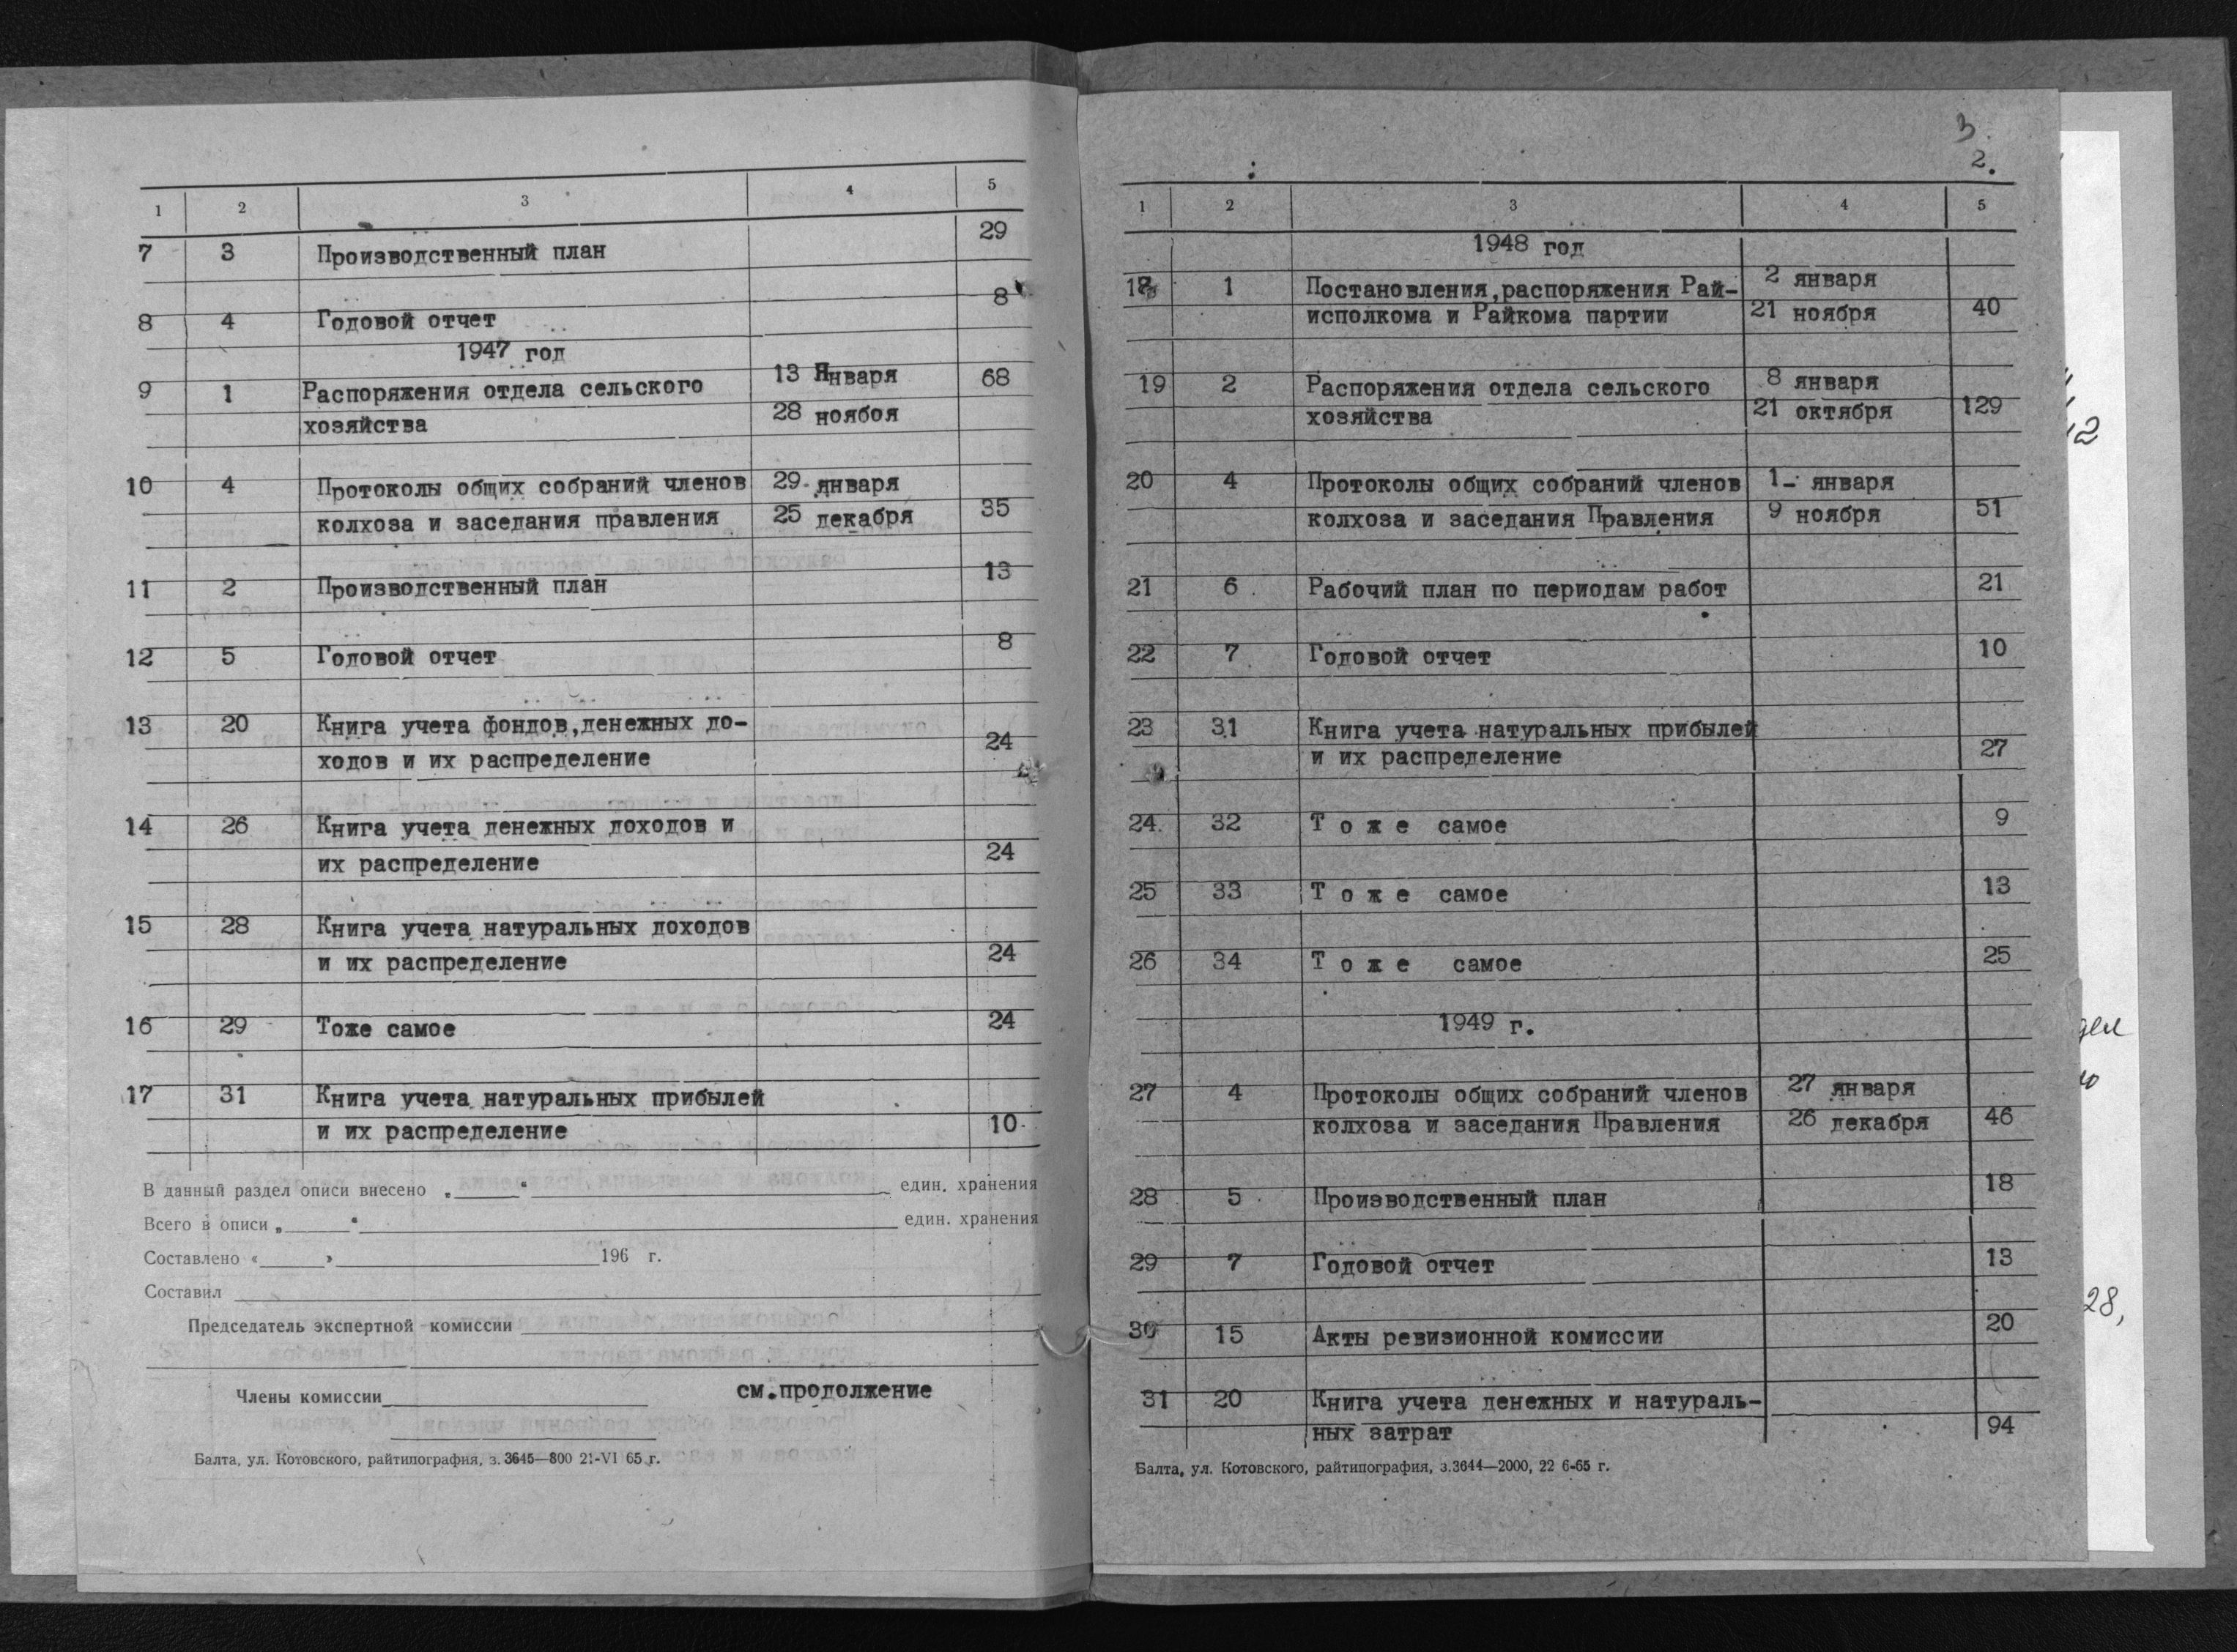 1 2 3 4 5
7 3 Производственный план 29
8 4 Годовой отчет 8
1947 год
9 1 Распоряжения отдела сельского 13 Января 68
хозяйства 28 ноябоя
10 4 Протоколы общих собраний членов 29 января
колхоза и заседания правления 25 декабря 35
11 2 Производственный план 13
12 5 Годовой отчет 8
13 20 Книга учета фондов,денежных до-
ходов и их распределение 24
14 26 Книга учета денежных доходов и
их распределение 24
15 28 Книга учета натуральных доходов
и их распределение 24
16 29 Тоже самое 24
17 31 Книга учета натуральных прибылей
и их распределение 10
В данный раздел описи внесено „ “ един. хранения
Всего в описи „ “ един. хранения
Составлено « » 196 г.
Составил
Председатель экспертной комиссии
Члены комиссии см.продолжение
Балта, ул. Котовского, райтипография, з. 3645—800 21-VI 65 г.
3.
2.
:
1 2 3 4 5
1948 год
18 1 Постановления,распоряжения Рай- 2 января
исполкома и Райкома партии 21 ноября 40
19 2 Распоряжения отдела сельского 8 января
хозяйства 21 октября 129
20 4 Протоколы общих собраний членов 1- января
колхоза и заседания Правления 9 ноября 51
21 6 Рабочий план по периодам работ 21
22 7 Годовой отчет 10
23 31 Книга учета натуральных прибылей
и их распределение 27
24. 32 Т о ж е самое 9
25 33 Т о ж е самое 13
26 34 Т о ж е самое 25
1949 г.
27 4 Протоколы общих собраний членов 27 января
колхоза и заседания Правления 26 декабря 46
28 5 Производственный план 18
29 7 Годовой отчет 13
30 15 Акты ревизионной комиссии 20
31 20 Книга учета денежных и натураль-
ных затрат 94
Балта, ул. Котовского, райтипография, з.3644—2000, 22 6-65 г.
28,